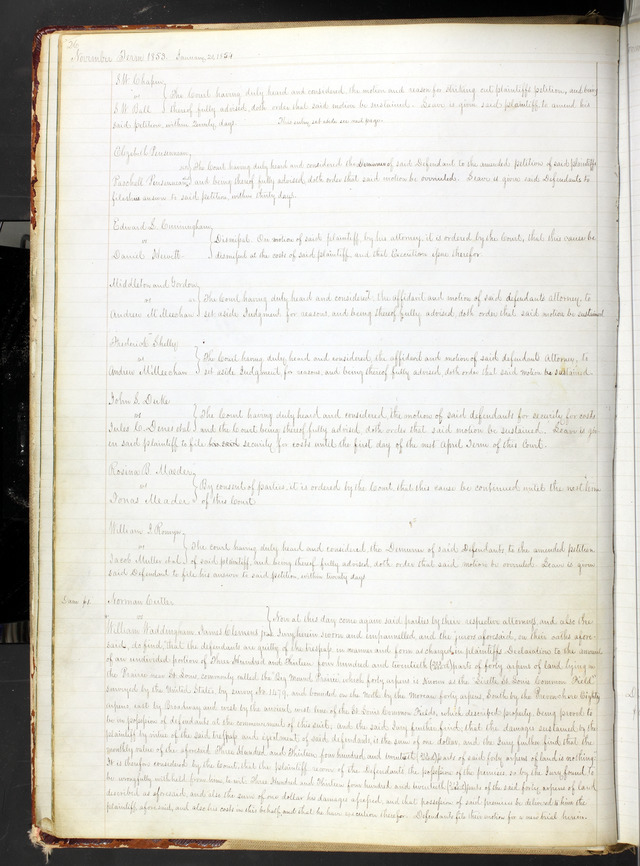 26
November Term 1853. January 20, 1854
S.W. Chapin,
vs } The Court having duly heard and considered the motion and reason for striking out plaintiffs petition, and being
S.W. Ball } thereof fully advised, doth order that said motion be sustained. Leave is given said plaintiff to amend his
said petition, within twenty days. This entry set aside see and page
Elizabeth
vs } The Court having duly heard and considered the Demurrer of said Defendant to the amended petition of said plaintiff
Paschall } and being thereof fully advised, doth order that said motion be overruled. Leave is given said Defendants to
file his answer to said petition, within thirty days.
Edward S. Cunningham,
vs } Dismissed. On motion of said plaintiff, by his attorney, it is ordered by the Court, that this cause be
Daniel Hewitt } dismissed at the costs of said plaintiff, and that Execution issue therefor.
Middleton and Gordon,
vs } The Court having duly heard and considered the affidavit and motion of said defendants attorney, to
Andrew M. Meechan } set aside Judgment for reasons, and being thereof fully advised, doth order that said motion be sustained
Frederick Shelly
vs } The Court having duly heard and considered the affidavit and motion of said defendants Attorney, to
Andrew Meechan } set aside Judgment for reasons, and being thereof fully advised doth order that said motion be sustained.
John S. Dake
vs } The Court having duly heard and considered, the motion of said defendants for security for costs
Jules C. et al } and the Court being thereof fully advised doth order that said motion be sustained. Leave is giv-
en said plaintiff to file security for costs until the first day of the next April Term of this Court.
Rosina B. Maeder,
vs } By consent of parties, it is ordered by the Court that this cause be continued until the next term
Jonas Meader } of this Court
William J. Romyn
vs } The court having duly heard and considered, the Demurrer of said Defendants, to the amended petition
Jacob Muller et al } of said plaintiff, and being thereof fully advised, doth order that said motion be overruled. Leave is given
said Defendant to file his answer to said petition, within twenty days
Dam $1. Norman Cutter
vs } Now at this day come again said parties by their respective attorneys, and also the
William Waddingham, James Clemens Jr. Jury herein sworn and impannelled, and the jurors aforesaid, on their oaths afore-
said, do find, that the defendants are guilty of the trespass in manner and form as charged in plaintiffs Declaration to the amount
of an undivided portion of Three Hundred and Thirteen four hundred and twentieth parts of forty arpens of land lying in
the Prairie near St Louis, commonly called the "Big Mound Prairie," which forty arpens is known as the "Little St Louis Common Field"
surveyed by the United States by survey No. 1479, and bounded on the North by the Moreau forty arpens, South by the Eighty
arpens, east by Broadway and west by the ancient west line of the St Louis Common Fields, which described property being proved to
be in possession of defendants at the commencement of this suit; and the said Jury further find, that the damages sustained by the
plaintiff by reason of the said trespass and ejectment of said defendants, is the sum of one dollar, and the Jury further find that the
monthly value of the aforesaid Three Hundred and Thirteen four hundred and twentieth parts of said forty arpens of land is nothing.
It is therefore considered by the Court, that the plaintiff recover of the defendants the possession of the premises, so by the Jury found to
be wrongfully withheld from him, to wit: Three Hundred and Thirteen four hundred and twentieth parts of the said forty arpens of land
described as aforesaid, and also the sum of one dollar his damages assessed, and that possession of said premises be delivered to him the
plaintiff aforesaid, and also his costs in this behalf, and that he have execution therefor. Defendants file their motion for a new trial herein.